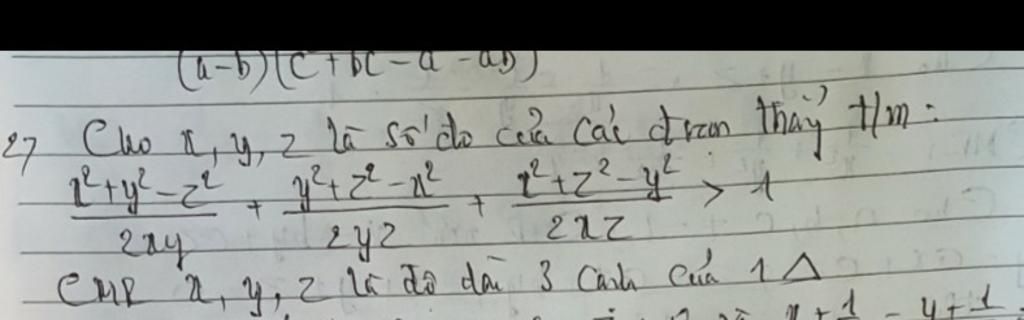 (a-b)(c²+bc-a²-ab)
27 Cho x, y, z là số đo của các đoạn thẳng t/m:
\frac{x²+y²-z²}{2xy} + \frac{y²+z²-x²}{2yz} + \frac{x²+z²-y²}{2xz} > 1
CMR x, y, z là độ dài 3 cạnh của 1 Δ
x+1 = y+1